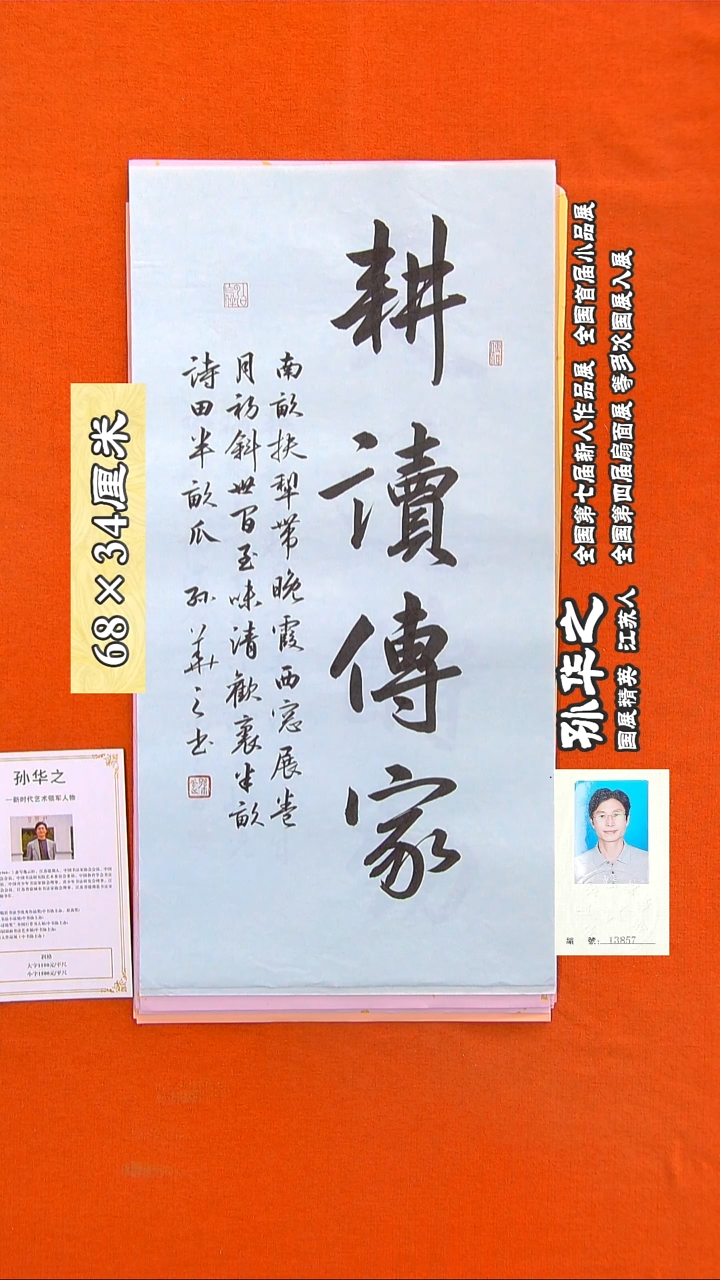 耕讀傳家
南畝扶犁帶晚霞西窓展卷
月初斜世百至味清歡裏半畝
詩田半畝瓜 孙華之书
68×34厘米
全国第七届新人作品展 全国首届小品展
全国第四届扇面展 等多次国展入展
孙华之
国展精英 江苏人
編 號: 13857
孙华之
—新时代艺术领军人物
价格
大字1100元/平尺
小字1600元/平尺